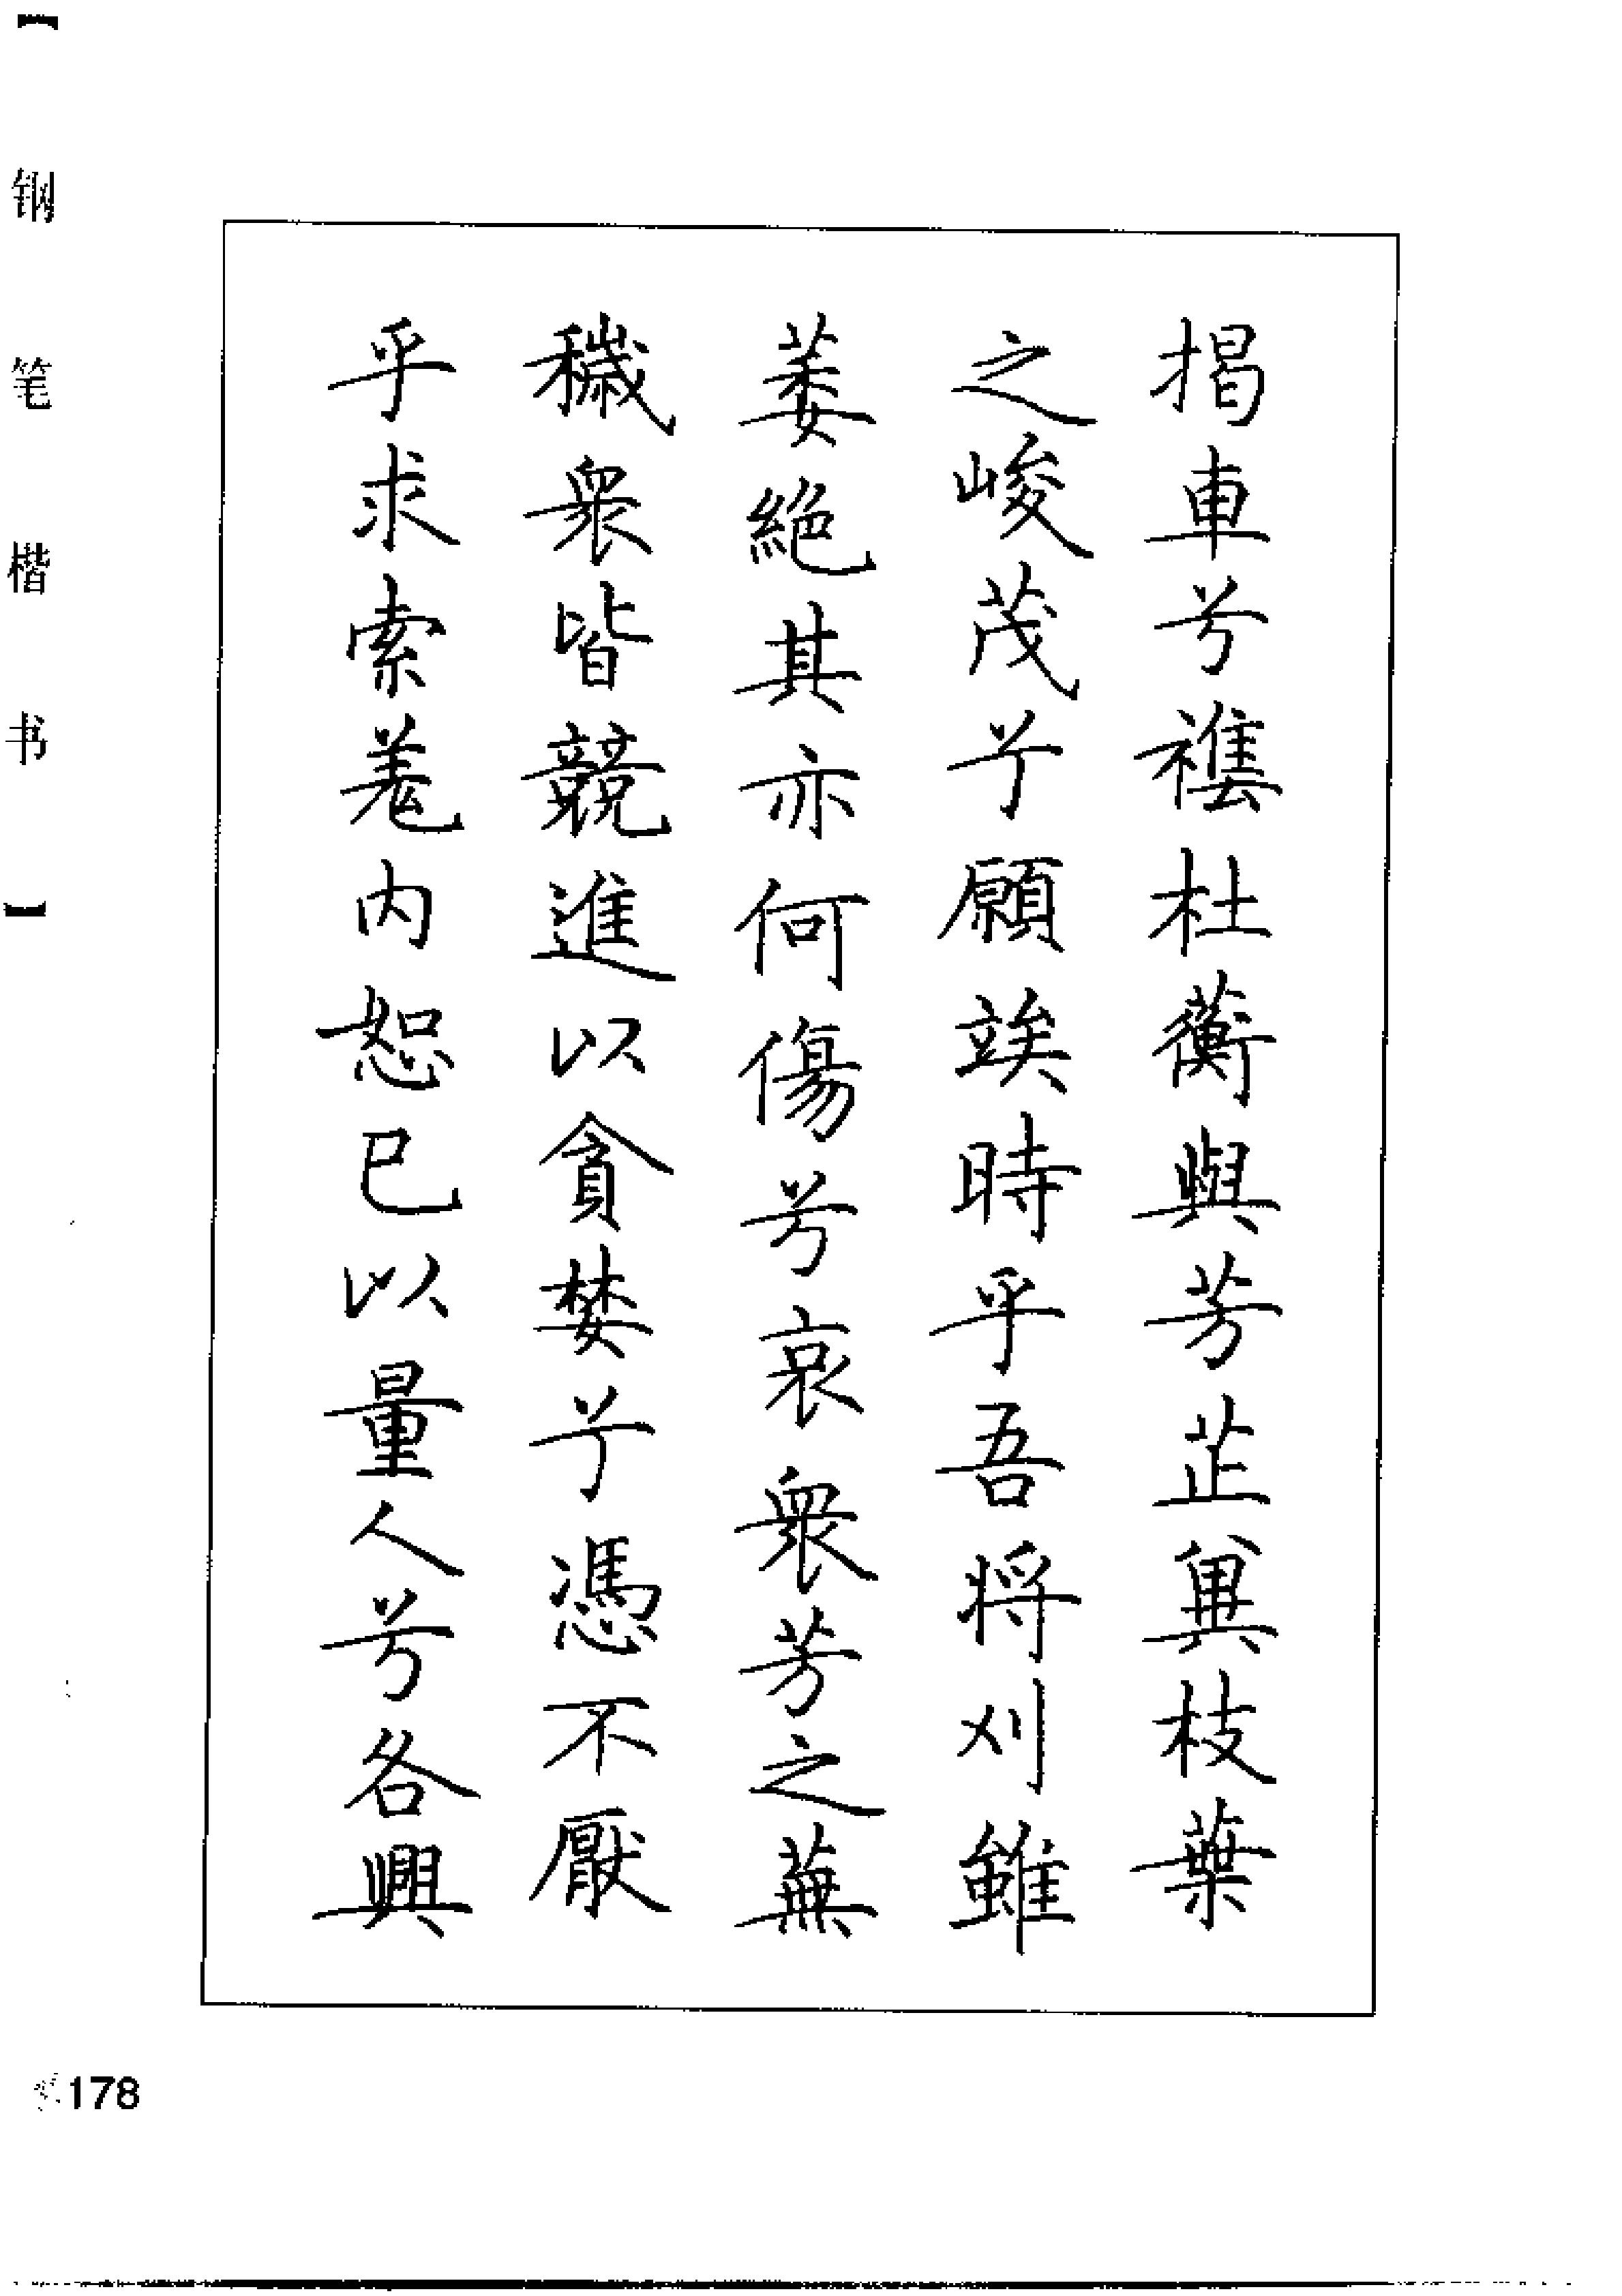 【钢笔楷书】
揭車兮襍杜蘅與芳芷冀枝葉
之峻茂兮願竢時乎吾将刈雖
萎絕其亦何傷兮哀衆芳之蕪
穢衆皆競進以貪婪兮憑不厭
乎求索羌内恕已以量人兮各興
178